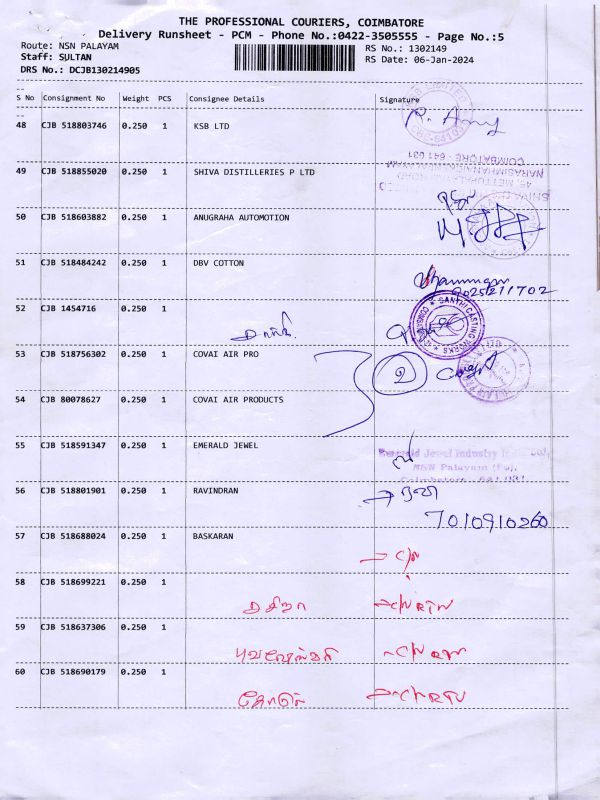 THE PROFESSIONAL COURIERS, COIMBATORE
Delivery Runsheet - PCM - Phone No.:0422-3505555 - Page No.:5
Route: NSN PALAYAM
RS No.: 1302149
Staff: SULTAN
RS Date: 06-Jan-2024
DRS No.: DCJB130214905
S No Consignment No Weight PCS Consignee Details Signature
48 CJB 518803746 0.250 1 KSB LTD
49 CJB 518855020 0.250 1 SHIVA DISTILLERIES P LTD
50 CJB 518603882 0.250 1 ANUGRAHA AUTOMOTION
51 CJB 518484242 0.250 1 DBV COTTON
52 CJB 1454716 0.250 1
SANTHI CASTING WORKS
53 CJB 518756302 0.250 1 COVAI AIR PRO
2
54 CJB 80078627 0.250 1 COVAI AIR PRODUCTS
55 CJB 518591347 0.250 1 EMERALD JEWEL
Emerald Jewel Industry
NSN Palayam (Po),
Coimbatore - 641 031
56 CJB 518801901 0.250 1 RAVINDRAN
ரவி
7010910260
57 CJB 518688024 0.250 1 BASKARAN
58 CJB 518699221 0.250 1
59 CJB 518637306 0.250 1
60 CJB 518690179 0.250 1